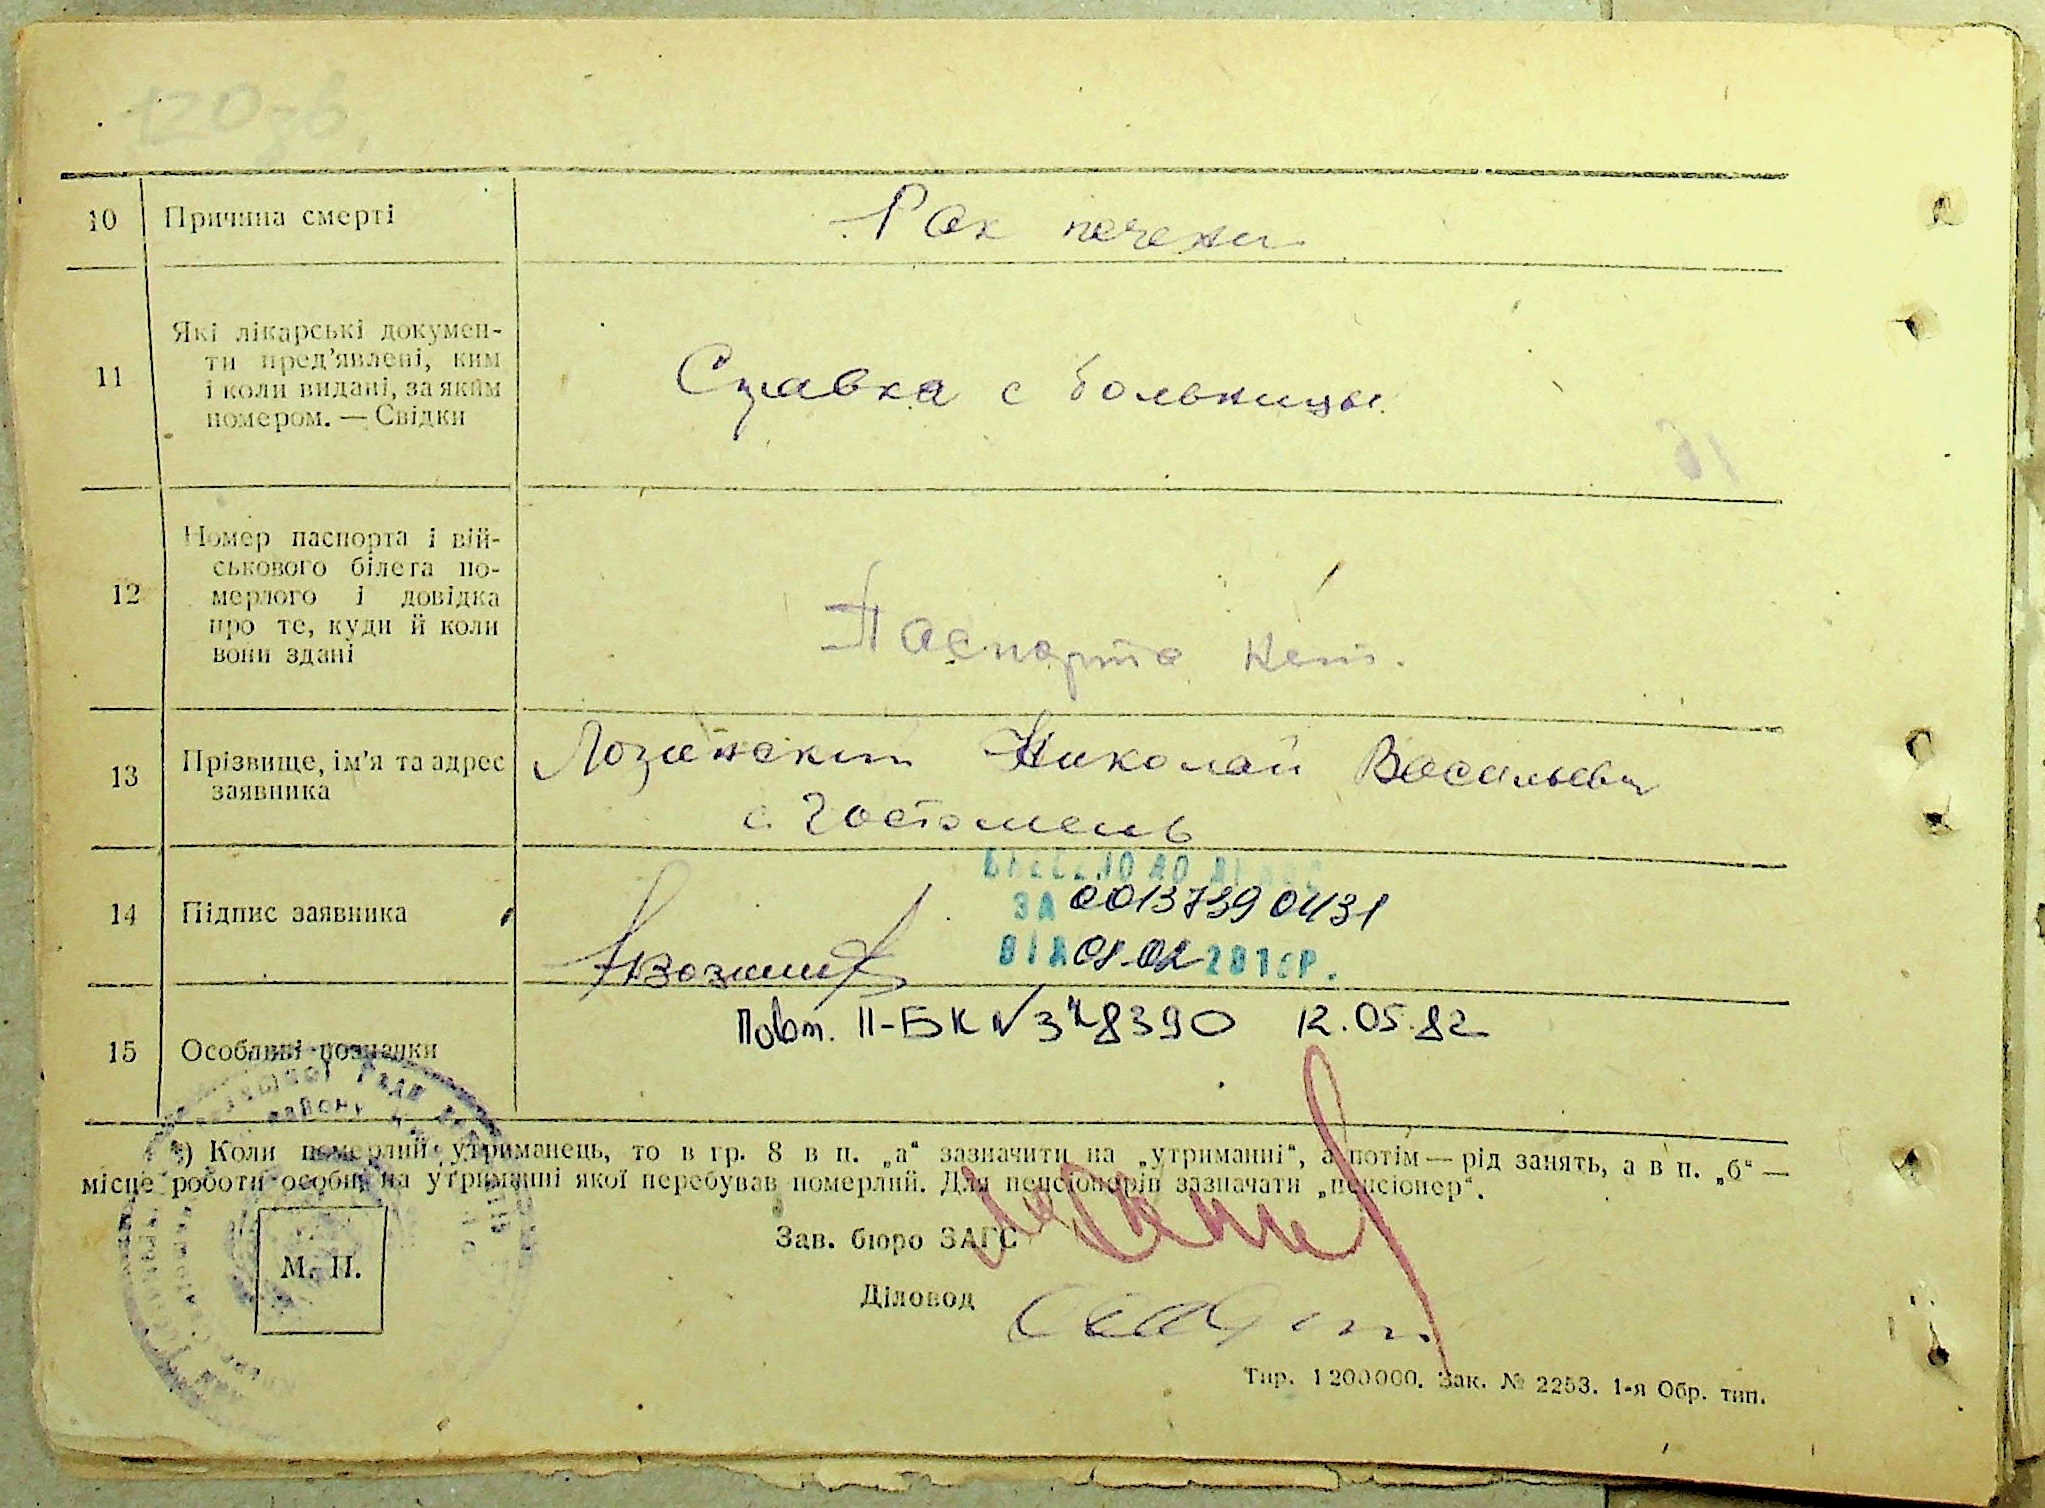 10 Причина смерті Рак печени
11 Які лікарські докумен-
ти пред'явлені, ким
і коли видані, за яким
номером. — Свідки
Справка с больницы
12 Номер паспорта і вій-
ськового білета по-
мерлого і довідка
про те, куди й коли
вони здані
Паспорта нет.
13 Прізвище, ім'я та адрес
заявника
Лозинский Николай Васильевич
с. Гостомель
14 Підпис заявника
ЗА 00137390431
ВІД 08.02 201 Р.
15 Особливі позначки
Повт. II-БК № 378390 12.05.82
*) Коли померлий утриманець, то в гр. 8 в п. „а“ зазначити на „утриманні“, а потім — рід занять, а в п. „б“ —
місце роботи особи, на утриманні якої перебував померлий. Для пенсіонерів зазначати „пенсіонер“.
Зав. бюро ЗАГС
М. П.
Діловод
Тир. 1200000. Зак. № 2253. 1-я Обр. тип.